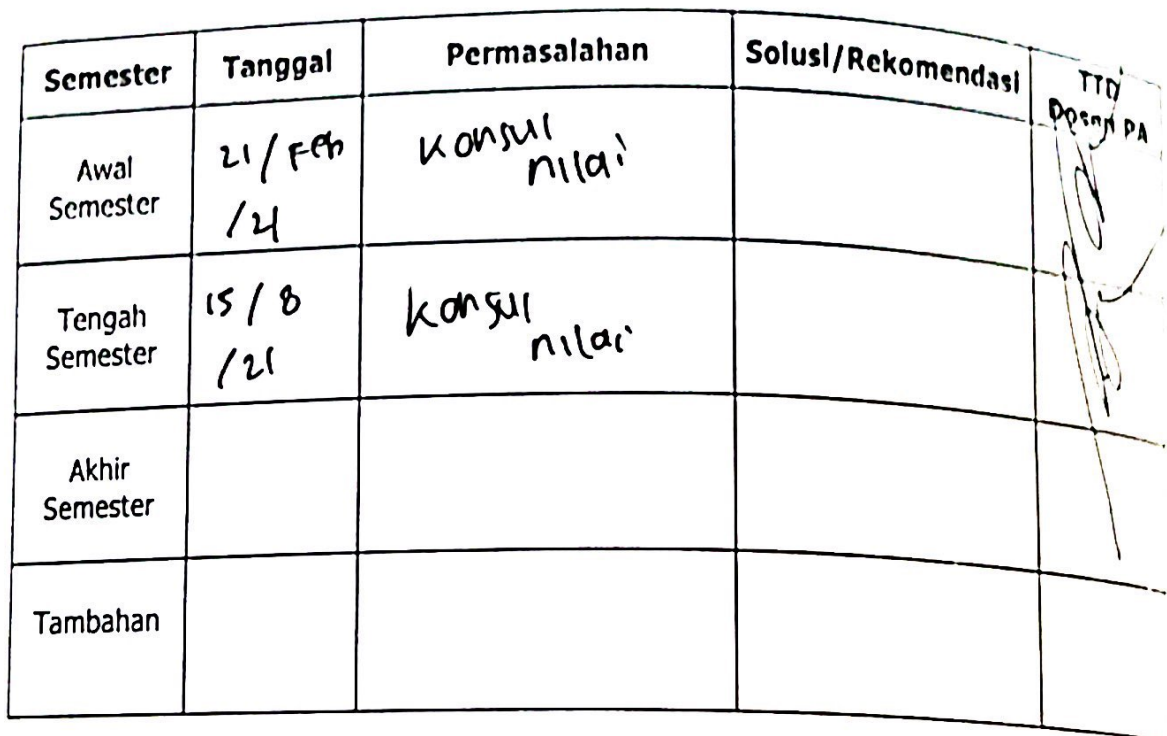 Semester Tanggal Permasalahan Solusi/Rekomendasi TTD
Dosen PA
Awal
Semester
21/Feb
/21
Konsul
nilai
Tengah
Semester
15/8
/21
Konsul
nilai
Akhir
Semester
Tambahan